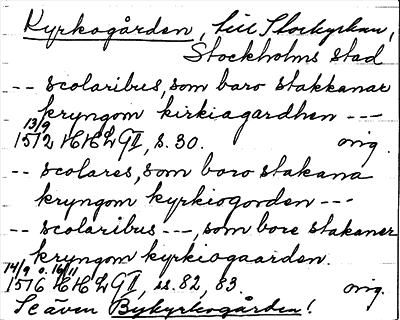 Kyrkogården, till Storkyrkan,
Stockholms stad
-- scolaribus, som baro stakkanar
kryngom kirkiagardhen ---
13/9
1512 HHLGII, s. 30. orig.
-- scolares, som boro stakana
kryngom kyrkiogorden ---
-- scolaribus ---, som bore stakaner
kryngom kyrkiogaarden.
14/9 o. 16/11
1516 HHLGII, ss. 82, 83. orig.
Se även Bykyrkogården!